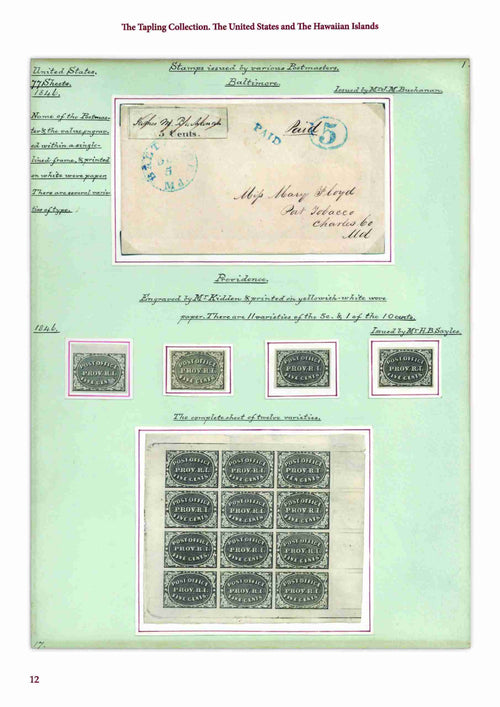 The Tapling Collection. The United States and The Hawaiian Islands
1.
United States.
77 Sheets.
1846.
Stamps issued by various Postmasters.
Baltimore.
Issued by Mr J. M. Buchanan.
Name of the Postmas-
ter & the value, engrav-
ed within a single-
lined frame, & printed
on white wove paper.
There are several varie-
ties of type.
5 Cents.
PAID
Paid
5
BALT
Miss Mary Floyd
Port Tobacco
Charles Co
Md
Providence.
Engraved by Mr Kidden & printed on yellowish-white wove
paper. There are 11 varieties of the 5c. & 1 of the 10 cents.
1846.
Issued by Mr H. B. Sayles.
POST OFFICE
PROV. R.I.
FIVE CENTS
POST OFFICE
PROV. R.I.
FIVE CENTS
POST OFFICE
PROV. R.I.
FIVE CENTS
POST OFFICE
PROV. R.I.
FIVE CENTS
The complete sheet of twelve varieties.
POST OFFICE POST OFFICE POST OFFICE
PROV. R.I. PROV. R.I. PROV. R.I.
FIVE CENTS FIVE CENTS TEN CENTS
POST OFFICE POST OFFICE POST OFFICE
PROV. R.I. PROV. R.I. PROV. R.I.
FIVE CENTS FIVE CENTS FIVE CENTS
POST OFFICE POST OFFICE POST OFFICE
PROV. R.I. PROV. R.I. PROV. R.I.
FIVE CENTS FIVE CENTS FIVE CENTS
POST OFFICE POST OFFICE POST OFFICE
PROV. R.I. PROV. R.I. PROV. R.I.
FIVE CENTS FIVE CENTS FIVE CENTS
17.
12